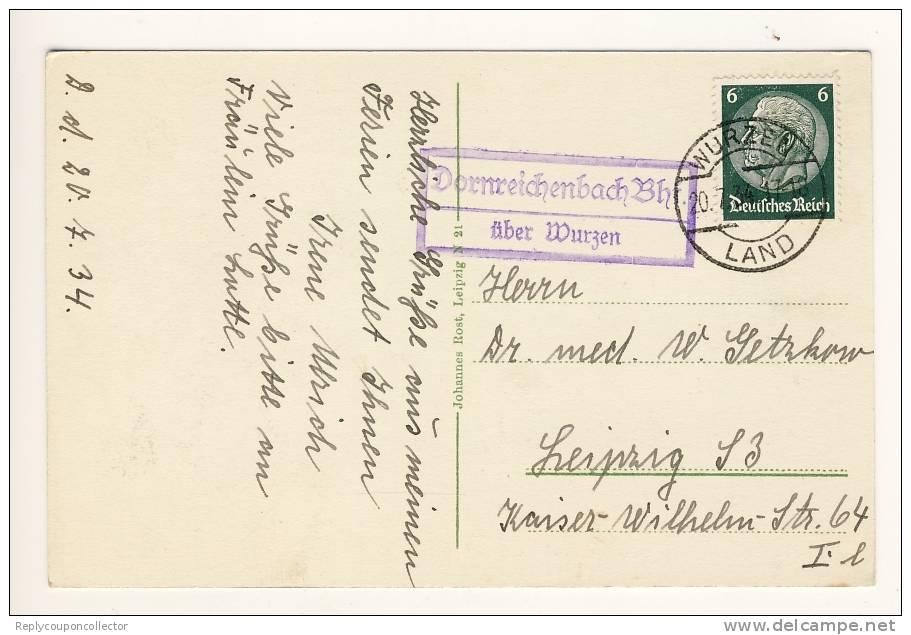 Herzliche Grüße aus meinen
Ferien sendet Ihnen
Irene Ulrich
Viele Grüße bitte an
Fräulein Lotte.
d. 20. 7. 34.
Johannes Rost, Leipzig N 21
Dornreichenbach Bh
über Wurzen
6 6
Deutsches Reich
WURZEN
20.7.34
LAND
Herrn
Dr. med. W. Getzkow
Leipzig S3
Kaiser-Wilhelm-Str. 64
I. l
Replycouponcollector
delcampe.net